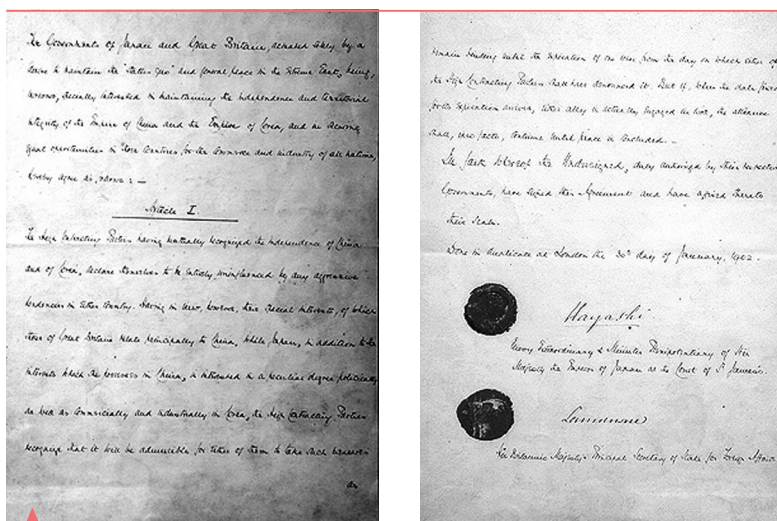 The Governments of Japan and Great Britain, actuated solely by a
desire to maintain the "status quo" and general peace in the Extreme East, being,
moreover, specially interested in maintaining the independence and territorial
integrity of the Empire of China and the Empire of Corea, and in securing
equal opportunities in those countries for the commerce and industry of all nations,
hereby agree as follows : —
Article I.
The High Contracting Parties having mutually recognized the independence of China
and of Corea, declare themselves to be entirely uninfluenced by any aggressive
tendencies in either country. Having in view, however, their special interests, of which
those of Great Britain relate principally to China, while Japan, in addition to the
interests which she possesses in China, is interested in a peculiar degree politically
as well as commercially and industrially in Corea, the High Contracting Parties
recognize that it will be admissible for either of them to take such measures
as
remain binding until the expiration of one year from the day on which either of
the High Contracting Parties shall have denounced it. But if, when the date fixed
for its expiration arrives, either ally is actually engaged in war, the alliance
shall, ipso facto, continue until peace is concluded. –
In faith whereof the Undersigned, duly authorized by their respective
Governments, have signed this Agreement and have affixed thereto
their Seals.
Done in duplicate at London the 30th day of January, 1902.
Hayashi
Envoy Extraordinary & Minister Plenipotentiary of His
Majesty the Emperor of Japan at the Court of St. James's.
Lansdowne
His Britannic Majesty's Principal Secretary of State for Foreign Affairs